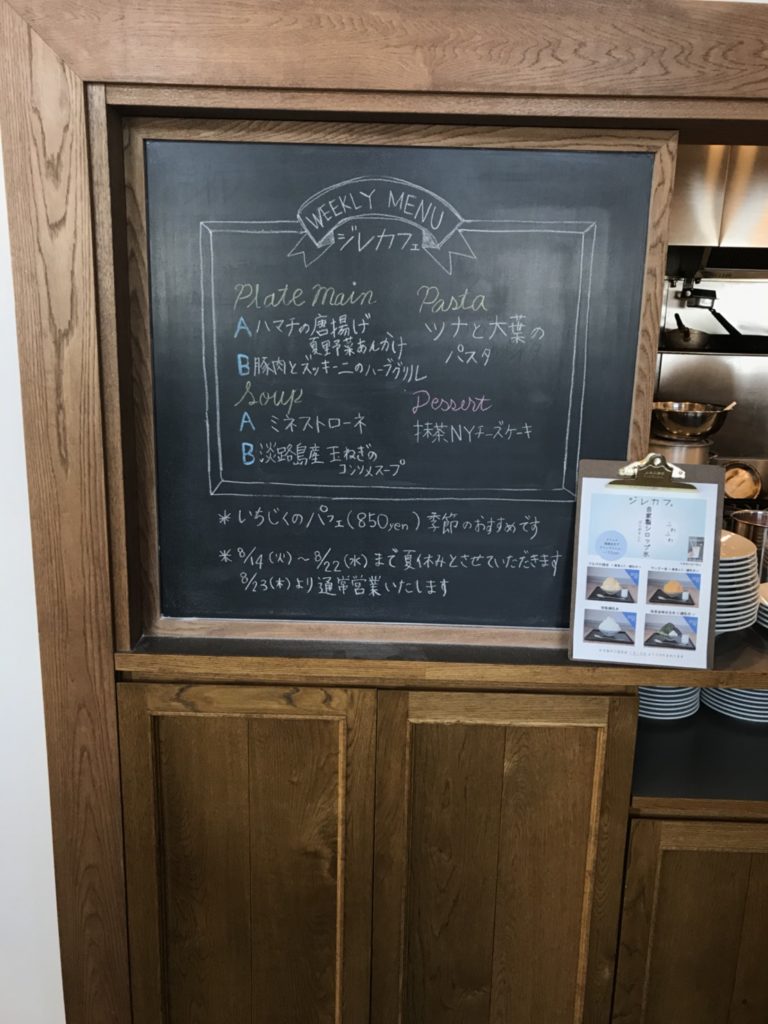 WEEKLY MENU
ジレカフェ
Plate main
A ハマチの唐揚げ
夏野菜あんかけ
B 豚肉とズッキーニのハーブグリル
Soup
A ミネストローネ
B 淡路島産 玉ねぎの
コンソメスープ
Pasta
ツナと大葉の
パスタ
Dessert
抹茶NYチーズケーキ
* いちじくのパフェ(850yen) 季節のおすすめです
* 8/14(火)〜8/22(水)まで夏休みとさせていただきます
8/23(木)より通常営業いたします
ジレカフェ
ふわふわ
自家製シロップ氷